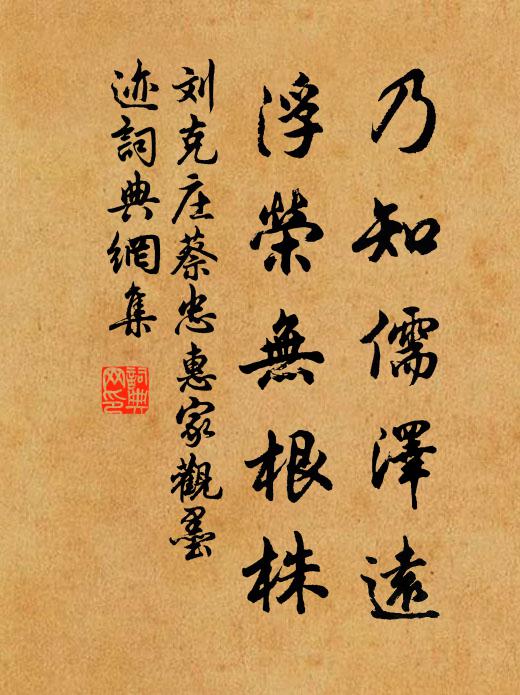 乃知儒澤遠
浮榮無根株
刘克庄蔡忠惠家觀墨
迹詞典網集
詞典網印